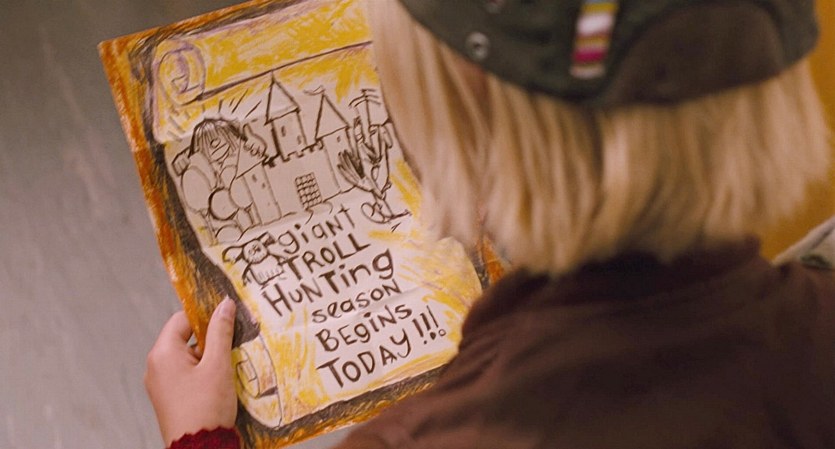 giant
TROLL
HUNTING
season
BEGINS
TODAY!!!